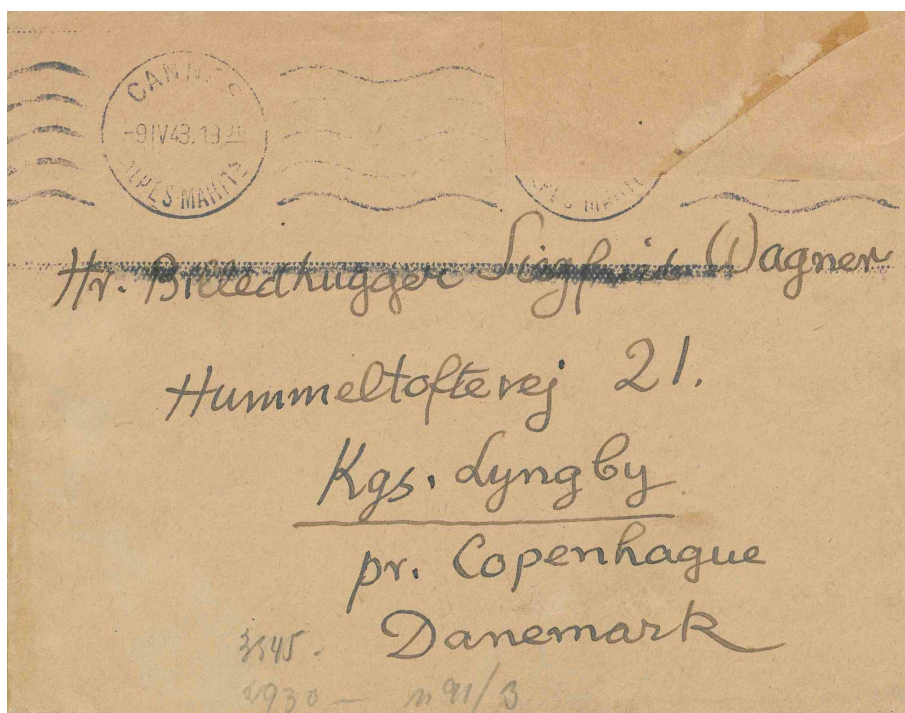 CANNES
-9 IV 43. 19
ALPES-MARITS
ALPES MARITS
Hr. Billedhugger Siegfried Wagner
Hummeltoftevej 21.
Kgs. Lyngby
pr. Copenhague
Danemark
3545.
2930 — n 91/3